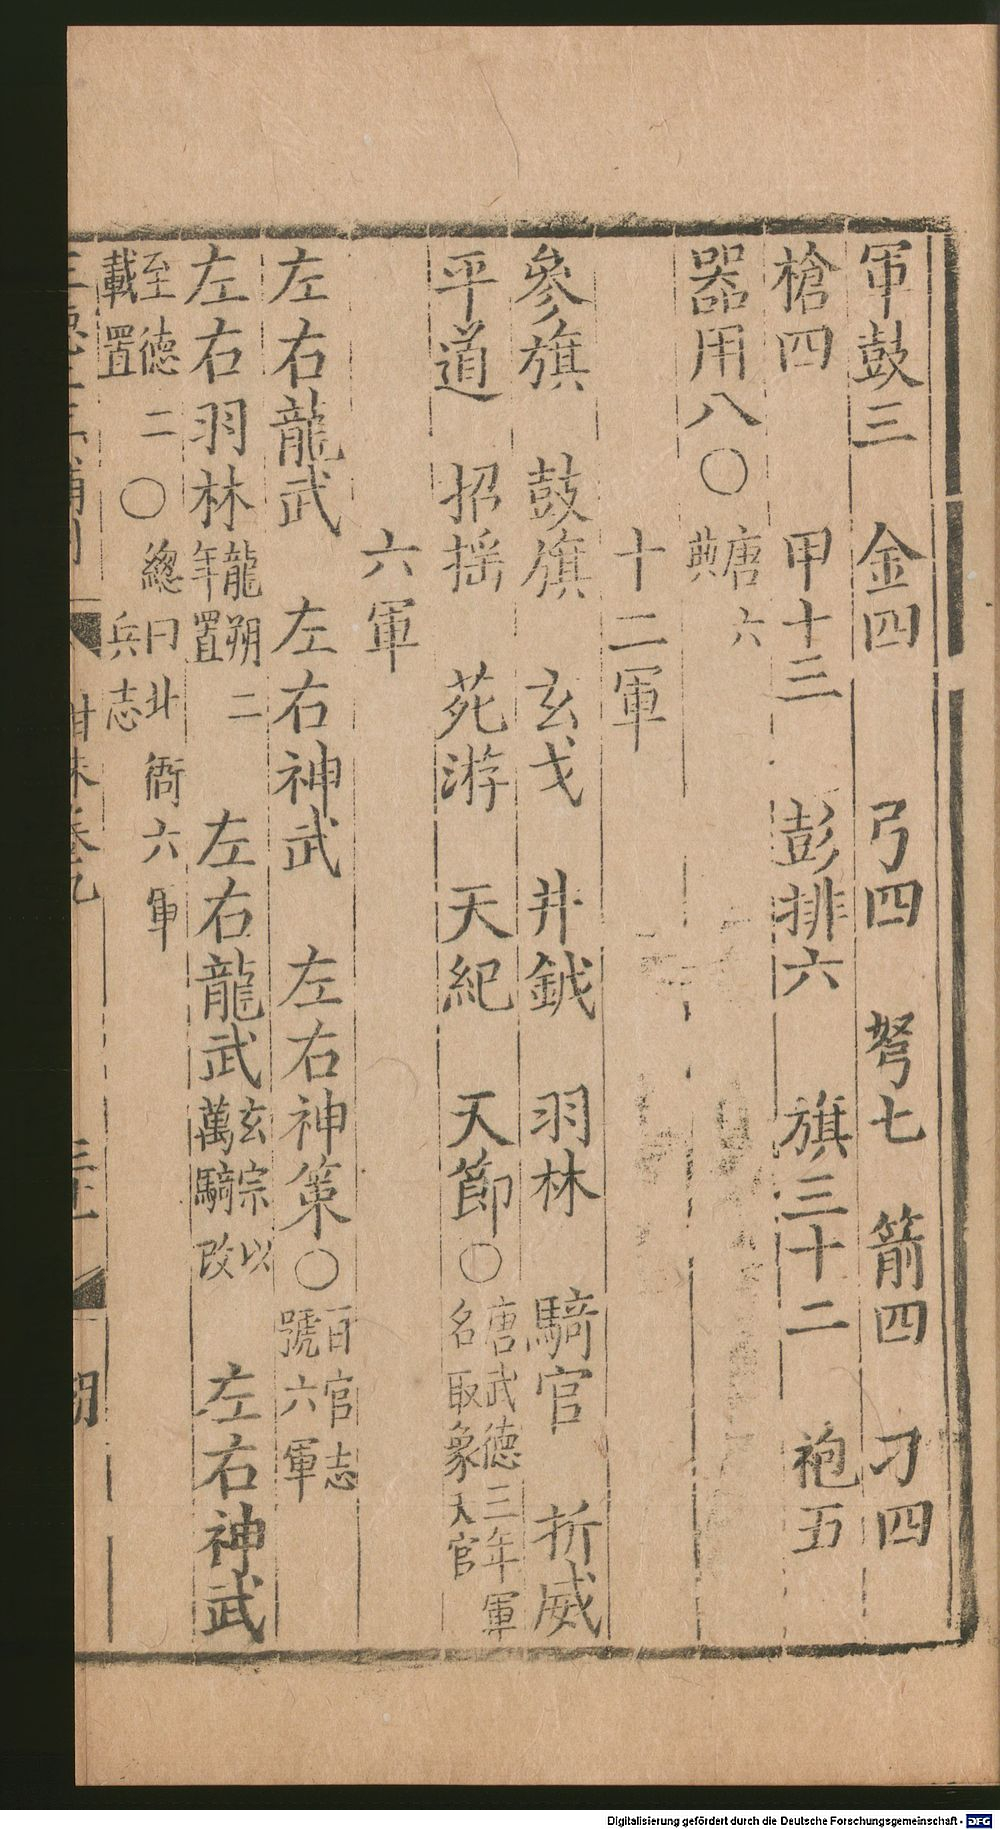 軍鼓三　金四　弓四　弩七　箭四　刁四
槍四　甲十三　彭排六　旗三十二　袍五
器用八〇唐六典
十二軍
參旗　鼓旗　玄戈　井鉞　羽林　騎官　折威
平道　招揺　苑游　天紀　天節〇唐武德三年軍名取象天官
六軍
左右龍武　左右神武　左右神策〇百官志號六軍
左右羽林龍朔二年置　左右龍武玄宗以萬騎改　左右神武
至德二載置〇總曰北衙六軍兵志
Digitalisierung gefördert durch die Deutsche Forschungsgemeinschaft - DFG